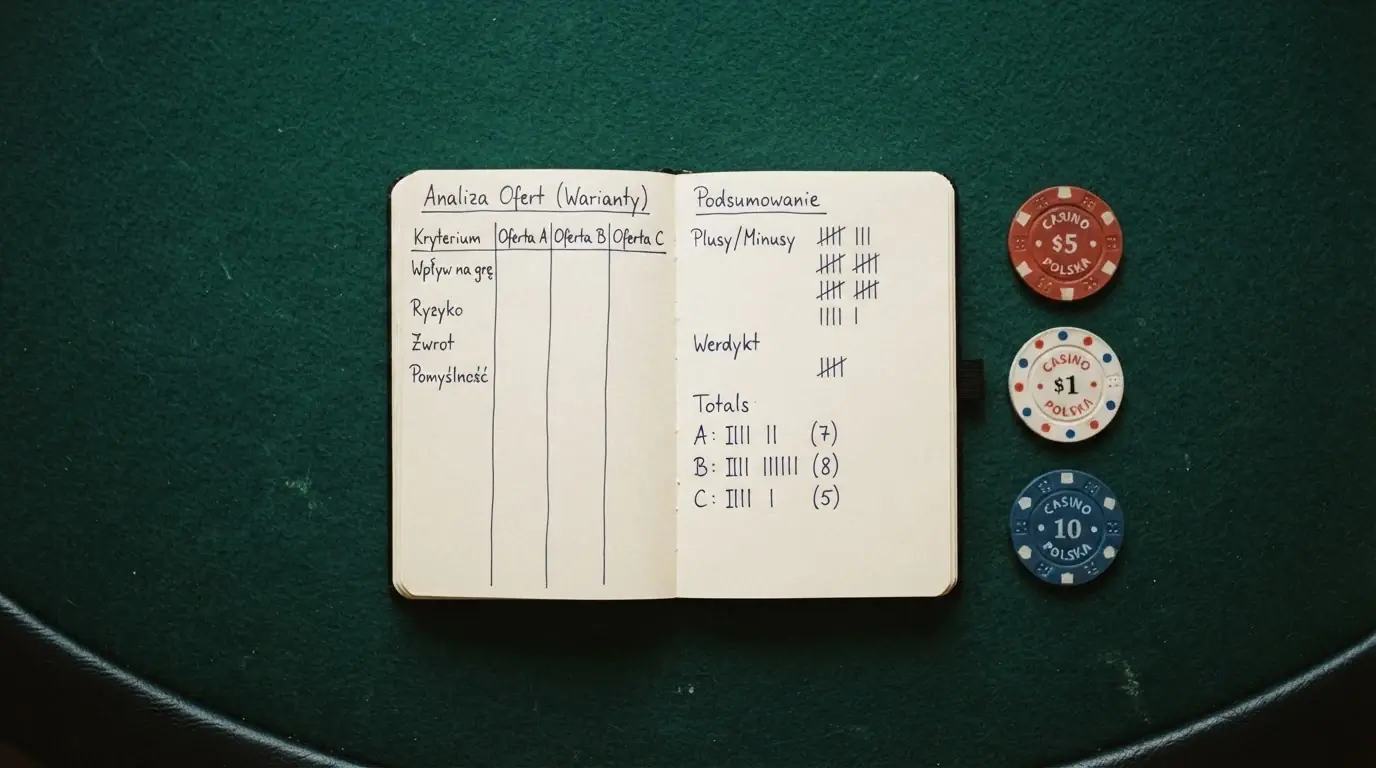 Analiza Ofert (Warianty)
Kryterium Oferta A Oferta B Oferta C
Wpływ na grę
Ryzyko
Żwrot
Pomyślność
Podsumowanie
Plusy/Minusy
Werdykt
Totals
A: IIII II (7)
B: IIII IIIIII (8)
C: IIII I (5)
CASINO
$5
POLSKA
CASINO
$1
POLSKA
CASINO
10
POLSKA